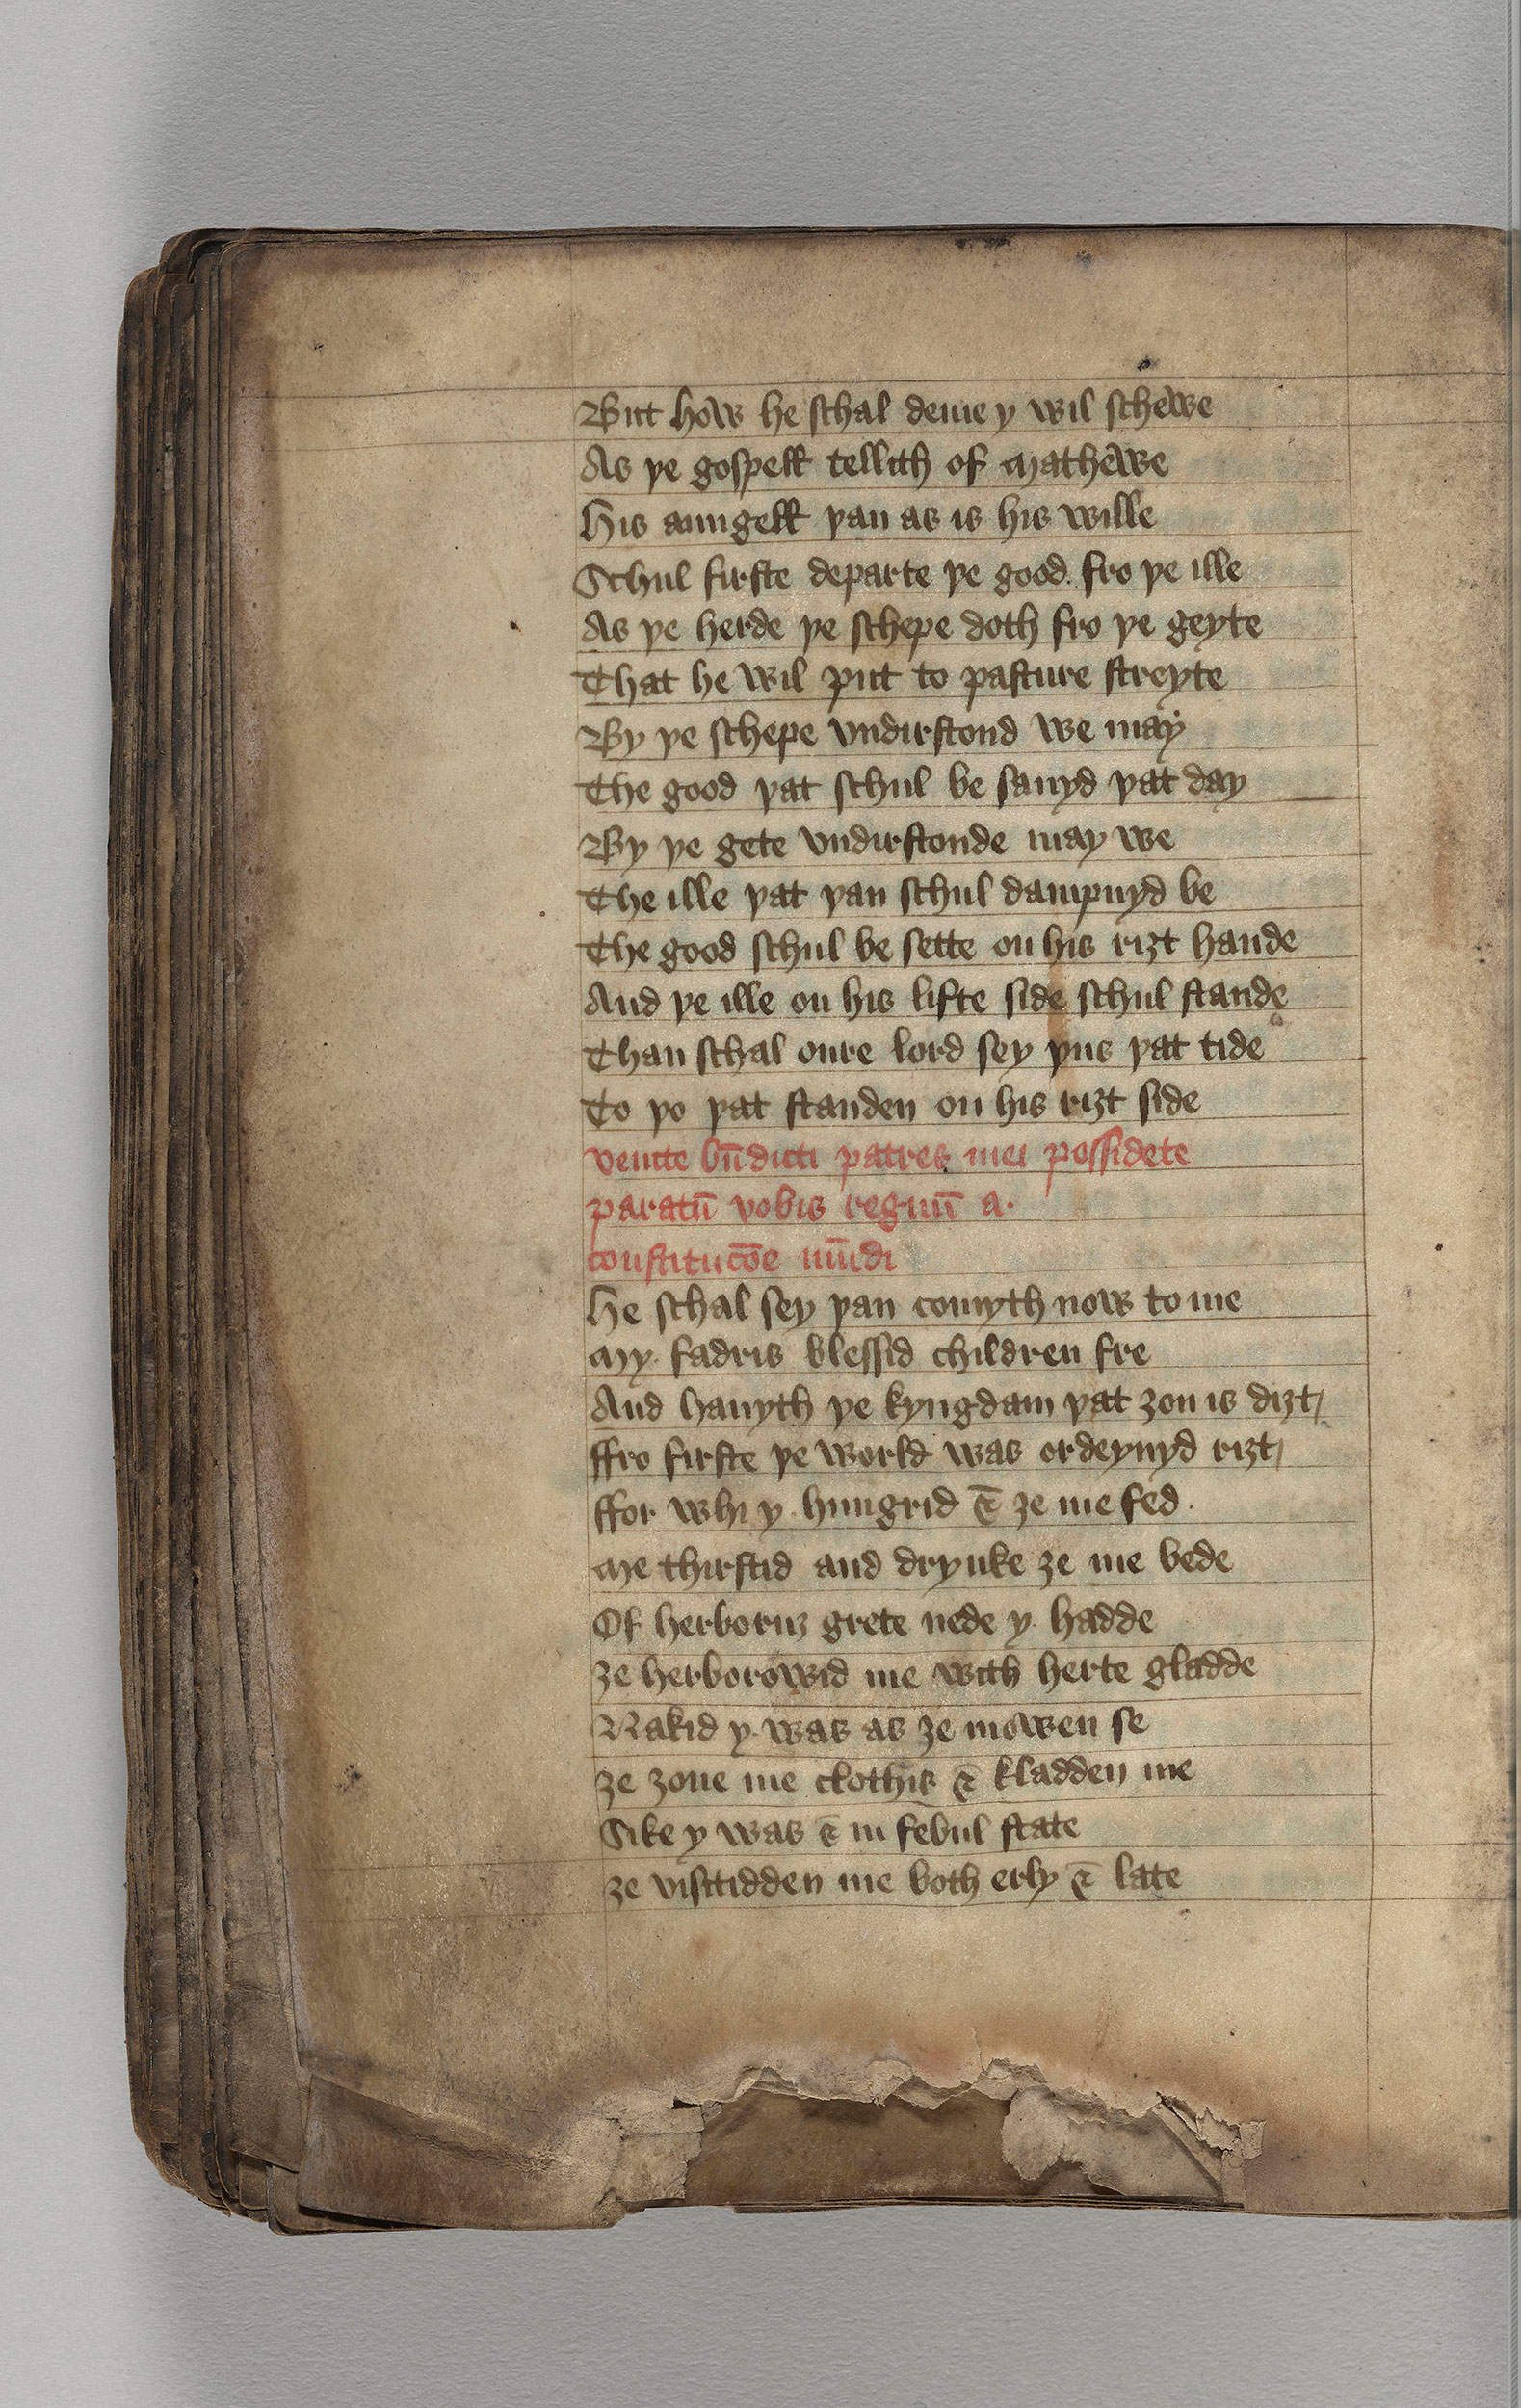 But how he schal deme y wil schewe
As þe gospell tellith of mathewe
His aungell þan as is his wille
Schul firste departe þe good. fro þe ille
As þe herde þe schepe doth fro þe geyte
That he wil put to pasture streyte
By þe schepe vndirstond we may
The good þat schul be sauyd þat day
By þe gete vndirstonde may we
The ille þat þan schul dampnyd be
The good schul be sette on his riȝt hande
And þe ille on his lifte side schul stande
Than schal oure lord sey þus þat tide
To þo þat standen on his riȝt side
venite bn̄dicti patres mei possidete
paratū vobis regnū a.
constitucōe mūdi
He schal sey þan comyth now to me
My fadris blessid children fre
And hauyth þe kyngdam þat ȝou is diȝt
ffro firste þe world was ordeynyd riȝt
ffor whi y hungrid ⁊ ȝe me fed.
Me thirstid and drynke ȝe me bede
Of herboruȝ grete nede y hadde
ȝe herborowid me with herte gladde
Nakid y was as ȝe mowen se
ȝe ȝoue me clothis ⁊ kladden me
Sike y was ⁊ in febul state
ȝe visitidden me both erly ⁊ late